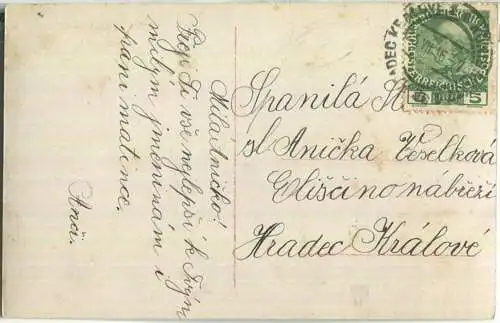 Miladničko!
Přeji Ti vše nejlepší k Tvým
milým jmeninám i
paní matince.
Anči.
Spanilá
sl Anička Veselková
Eliščino nábřeží
Hradec Králové
5